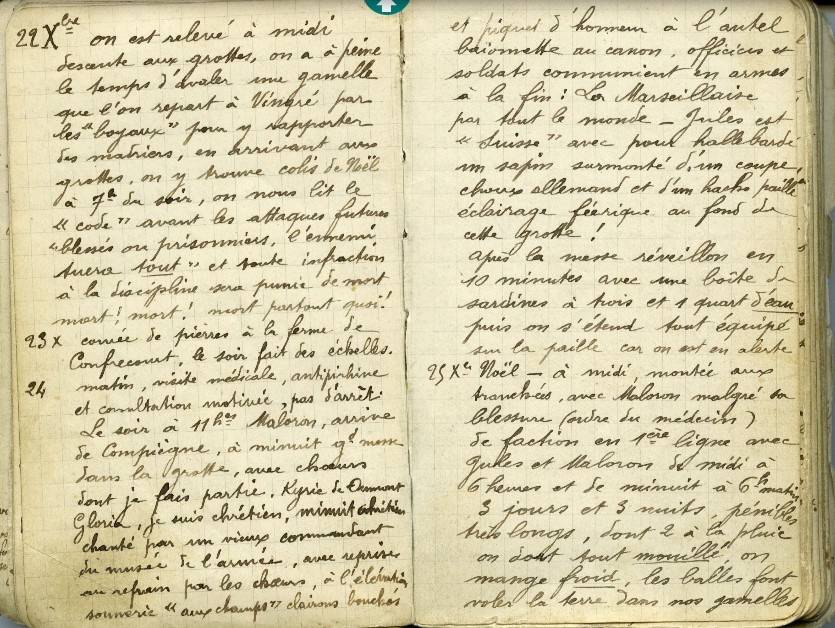 22 Xbre on est relevé à midi
descente aux grottes, on a à peine
le temps d'avaler une gamelle
que l'on repart à Vingré par
les "boyaux" pour y rapporter
des madriers, en arrivant aux
grottes, on y trouve colis de Noël
à 7h du soir, on nous lit le
"code" avant les attaques futures
"blessés ou prisonniers, l'ennemi
tuera tout" et toute infraction
à la discipline sera punie de mort
mort! mort! mort partout quoi!
23 X corvée de pierres à la ferme de
Confrecourt, le soir fait des échelles.
24 matin, visite médicale, antipirhine
et consultation motivée, pas d'arrêt.
Le soir à 11hes Maloron, arrive
de Compiègne, à minuit gd messe
dans la grotte, avec chœurs
dont je fais partie. Kyrie de Dumont
Gloria, je suis chrétien, minuit chrétien
chanté par un vieux commandant
du musée de l'armée, avec reprise
au refrain par les chœurs, à l'élévation
sonnerie "aux champs" clairons bouchés
et piquet d'honneur à l'autel
baionnette au canon, officiers et
soldats communient en armes
à la fin: La Marseillaise
par tout le monde - Jules est
"Suisse" avec pour hallebarde
un sapin surmonté d'un coupe
choux allemand et d'un hache paille
éclairage féerique au fond de
cette grotte!
après la messe réveillon en
10 minutes avec une boîte de
sardines à trois et 1 quart d'eau
puis on s'étend tout équipé
sur la paille car on est en alerte
25 Xre Noël - à midi, montée aux
tranchées, avec Maloron malgré sa
blessure (ordre du médecin)
de faction en 1ère ligne avec
Jules et Maloron de midi à
6 heures et de minuit à 6h matin
3 jours et 3 nuits, pénibles
très longs, dont 2 à la pluie
on dort tout mouillé on
mange froid, les balles font
voler la terre dans nos gamelles